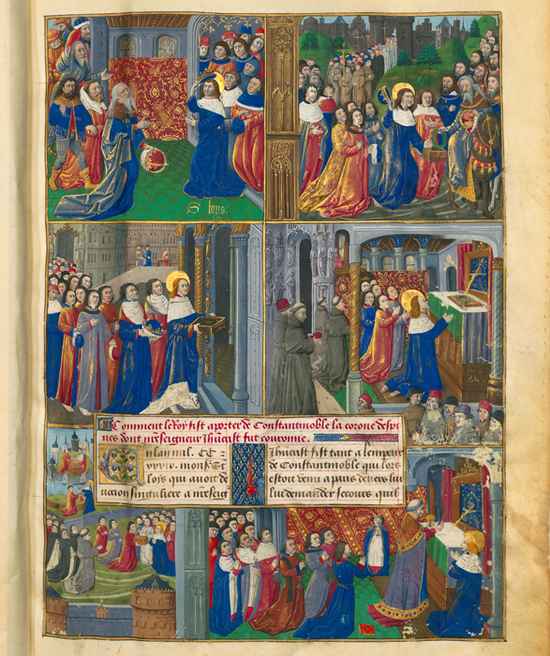 S loys.
Comment le Roy fist aporter de Constantinoble la corone despi
nes dont nreseigneur Ihucrist fut couronne.
lan mil. CC.
xxxix. monsr St
lois qui auoit de
uocion singuliere a nreseigr
Ihucrist fist tant a lemper
de Constantinoble qui lors
estoit venu a paris deuers lui
lui demander secours quil